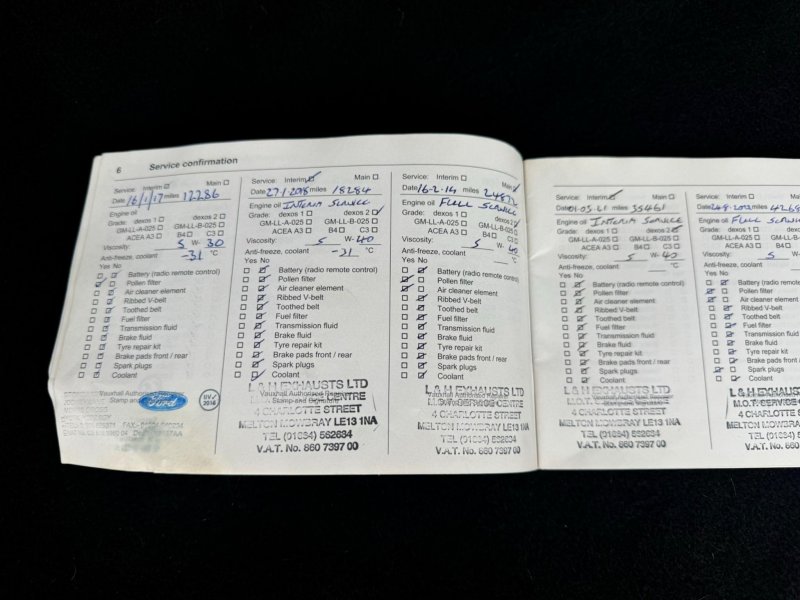 6 Service confirmation
Service: Interim Main
Date 16/1/17 miles 12286
Engine oil
Grade: dexos 1 dexos 2
GM-LL-A-025 GM-LL-B-025
ACEA A3 B4 C3
Viscosity: 5 W- 30
Anti-freeze, coolant -31 °C
Yes No
Battery (radio remote control)
Pollen filter
Air cleaner element
Ribbed V-belt
Toothed belt
Fuel filter
Transmission fluid
Brake fluid
Tyre repair kit
Brake pads front / rear
Spark plugs
Coolant
Vauxhall Authorised
Stamp and
Ford
Service: Interim Main
Date 27-1-2018 miles 18284
Engine oil INTERIM SERVICE
Grade: dexos 1 dexos 2
GM-LL-A-025 GM-LL-B-025
ACEA A3 B4 C3
Viscosity: 5 W- 40
Anti-freeze, coolant -31 °C
Yes No
Battery (radio remote control)
Pollen filter
Air cleaner element
Ribbed V-belt
Toothed belt
Fuel filter
Transmission fluid
Brake fluid
Tyre repair kit
Brake pads front / rear
Spark plugs
Coolant
L & H EXHAUSTS LTD
Vauxhall Authorised Repairer
Stamp and Signature
4 CHARLOTTE STREET
MELTON MOWBRAY LE13 1NA
TEL (01664) 562634
V.A.T. No. 860 7397 00
Service: Interim Main
Date 16-2-19 miles
Engine oil FULL SERVICE
Grade: dexos 1 dexos 2
GM-LL-A-025 GM-LL-B-025
ACEA A3 B4 C3
Viscosity: 5 W- 40
Anti-freeze, coolant °C
Yes No
Battery (radio remote control)
Pollen filter
Air cleaner element
Ribbed V-belt
Toothed belt
Fuel filter
Transmission fluid
Brake fluid
Tyre repair kit
Brake pads front / rear
Spark plugs
Coolant
L & H EXHAUSTS LTD
Vauxhall Authorised Repairer
M.O.T. SERVICE CENTRE
4 CHARLOTTE STREET
MELTON MOWBRAY LE13 1NA
TEL (01664) 562634
V.A.T. No. 860 7397 00
Service: Interim Main
Date 01-05-21 miles 35461
Engine oil INTERIM SERVICE
Grade: dexos 1 dexos 2
GM-LL-A-025 GM-LL-B-025
ACEA A3 B4 C3
Viscosity: 5 W- 40
Anti-freeze, coolant °C
Yes No
Battery (radio remote control)
Pollen filter
Air cleaner element
Ribbed V-belt
Toothed belt
Fuel filter
Transmission fluid
Brake fluid
Tyre repair kit
Brake pads front / rear
Spark plugs
Coolant
L & H EXHAUSTS LTD
Vauxhall Authorised Repairer
M.O.T. SERVICE CENTRE
4 CHARLOTTE STREET
MELTON MOWBRAY LE13 1NA
TEL (01664) 562634
V.A.T. No. 860 7397 00
Service: Interim Main
Date miles
Engine oil FULL
Grade: dexos 1 dexos 2
GM-LL-A-025 GM-LL-B-025
ACEA A3 B4 C3
Viscosity: 5 W-
Anti-freeze, coolant
Yes No
Battery (radio remote control)
Pollen filter
Air cleaner element
Ribbed V-belt
Toothed belt
Fuel filter
Transmission fluid
Brake fluid
Tyre repair kit
Brake pads front / rear
Spark plugs
Coolant
L & H EXHAUSTS
M.O.T. SERVICE
4 CHARLOTTE
MELTON MOWBRAY
TEL (01664)
V.A.T. No. 860